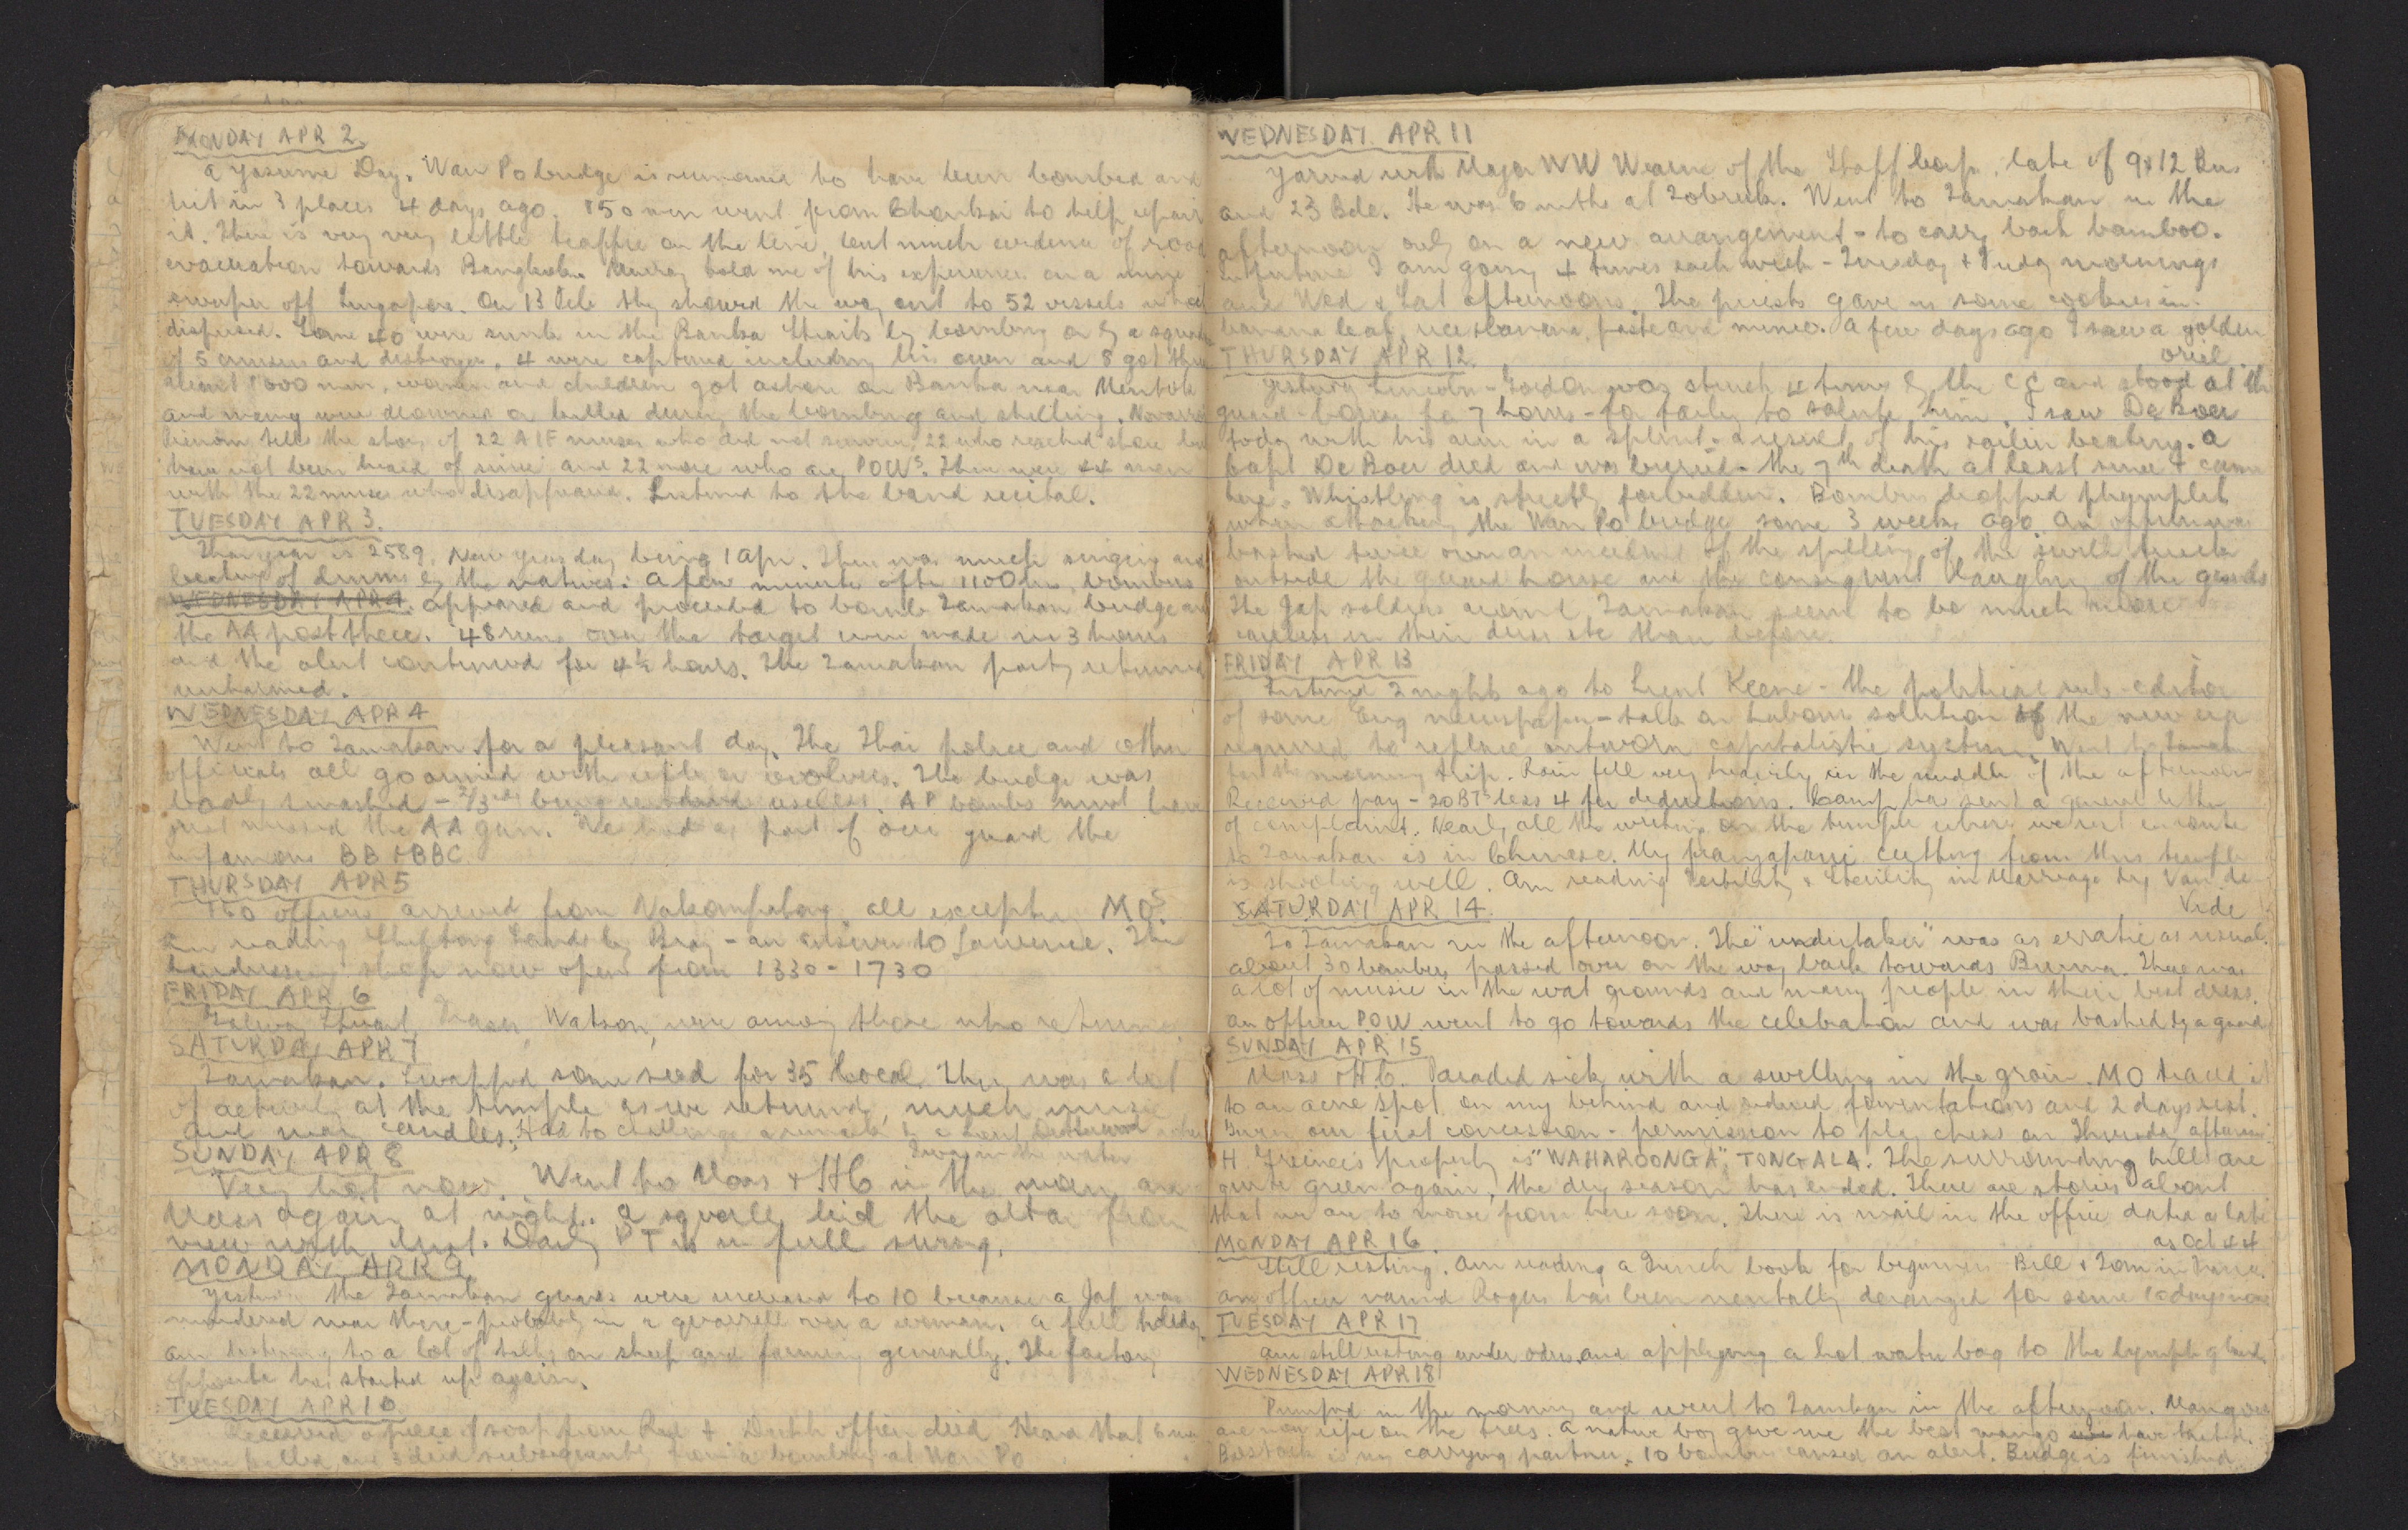 MONDAY APR 2.
A Yasume Day. Wan Po bridge is rumoured to have been bombed and
hit in 3 places 4 days ago. 150 men went from Chonkai to help repair
it. There is very very little traffic on the line, but much evidence of road
evacuation towards Bangkok. Murray told me of his experiences on a mine
sweeper off Singapore. On 13 Feb they showed the way out to 52 vessels which
dispersed. Some 40 were sunk in the Banka Straits by bombing or by a squad
of 5 cruisers and destroyers. 4 were captured including his own and 8 got thru
about 1000 men, women and children got ashore on Banka near Mentok
and many were drowned or killed during the bombing and shelling.
tells the story of 22 AIF nurses who did not survive, 22 who reached shore but
have not been heard of since and 22 more who are POWs. There were 44 men
with the 22 nurses who disappeared. Listened to the band recital.
TUESDAY APR 3.
Thai year is 2589, New Years day being 1 Apr. There was much singing and
beating of drums by the natives. A few minutes after 1100 hrs, bombers
WEDNESDAY APR 4. appeared and proceeded to bomb Tamakan bridge and
the AA post there. 48 runs over the target were made in 3 hours
and the alert continued for 4½ hours. The Tamakan party returned
unharmed.
WEDNESDAY APR 4
Went to Tamakan for a pleasant day. The Thai police and other
officials all go armed with rifles or revolvers. The bridge was
badly smashed - 2/3rds being rendered useless. AP bombs must have
just missed the AA gun. We had as part of our guard the
infamous BB & BBC
THURSDAY APR 5
150 officers arrived from Nakompatong, all except MOs.
Am reading Shifting Sands by Bray - an answer to Lawrence. The
hairdressing shop now opens from 1330 - 1730
FRIDAY APR 6
Galway, Stuart, Fraser, Watson, were among those who returned
SATURDAY APR 7
Tamakan. Swapped some seed for 35 local. There was a lot
of activity at the temple as we returned, much music
and many candles. Had to challenge a remark by a
Swam in the water
SUNDAY APR 8
Very hot now. Went to Mass & HC in the morn and
Mass again at night. A squall hid the altar from
view with dust. Daily PT is in full swing.
MONDAY APR 9.
Yesterday the Tamakan guards were increased to 10 because a Jap was
murdered near there - probably in a quarrell over a woman. A full holiday.
Am listening to a lot of talks on sheep and farming generally. The factory
opposite has started up again.
TUESDAY APR 10
Received a piece of soap from Red + Dutch officer died. Heard that
were killed, and 3 died subsequently from a bombing at Wan Po
WEDNESDAY APR 11
Yarned with Major WW Wearne of the Staff Corps, late of 9 & 12 Bns
and 23 Bde. He was 6 mths at Tobruk. Went to Tamakan in the
afternoon only on a new arrangement - to carry back bamboo.
In future I am going 4 times each week - Tuesday & Friday mornings
and Wed & Sat afternoons. The priests gave us some cookies in
banana leaf, rice banana, paste and mince. A few days ago I saw a golden
oriel.
THURSDAY APR 12.
Yesterday Lincoln-Gordon was struck 4 times by the CE and stood at the
guard-house for 7 hours - for failing to salute him. I saw De Boer
today with his arm in a splint - a result of his earlier beating. A
Capt De Boer died and was buried - the 7th death at least since I came
here. Whistling is strictly forbidden. Bombers dropped phamplets
when attacking the Wan Po bridge some 3 weeks ago. An officer was
bashed twice over an incident of the spilling of the swill truck
outside the guard house and the consequent laughing of the guards
The Jap soldiers around Tamakan seem to be much more
careless in their dress etc than before.
FRIDAY APR 13
Listened 2 nights ago to Lieut Keene - the political sub-editor
of some Eng newspaper - talk on Labours solution of the new era
required to replace outworn capitalistic system. Went to Tamakan
for the morning trip. Rain fell very heavily in the middle of the afternoon
Received pay - 20 BTs less 4 for deductions. Camp has sent a general letter
of complaint. Nearly all the writing on the temple where we rest en route
to Tamakan is in Chinese. My frangapani cutting from this temple
is shooting well. Am reading Fertility & Sterility in Marriage by Van de
Velde
SATURDAY APR 14.
To Tamakan in the afternoon. The "undertaker" was as erratic as usual.
About 30 bombers passed over on the way back towards Burma. There was
a lot of music in the wat grounds and many people in their best dress.
An officer POW went to go towards the celebration and was bashed by a guard
SUNDAY APR 15
Mass & HC. Paraded sick with a swelling in the groin. MO traced it
to an acne spot on my behind and ordered fomentations and 2 days rest.
Given our first concession - permission to play chess on Thursday afternoon.
H property is "WAHAROONGA", TONGALA. The surrounding hills are
quite green again, the dry season has ended. There are stories about
that we are to move from here soon. There is mail in the office dated as late
as Oct 44
MONDAY APR 16.
Still resting. Am reading a French book for beginners - Bill & Tom in France.
An officer named Rogers has been mentally deranged for some 10 days now
TUESDAY APR 17
Am still resting under orders and applying a hot water bag to the lymph glands
WEDNESDAY APR 18
Pumped in the morning and went to Tamakan in the afternoon. Mangoes
are now ripe on the trees. A native boy gave me the best mango have tasted.
Bostock is my carrying partner. 10 bombers caused an alert. Bridge is finished